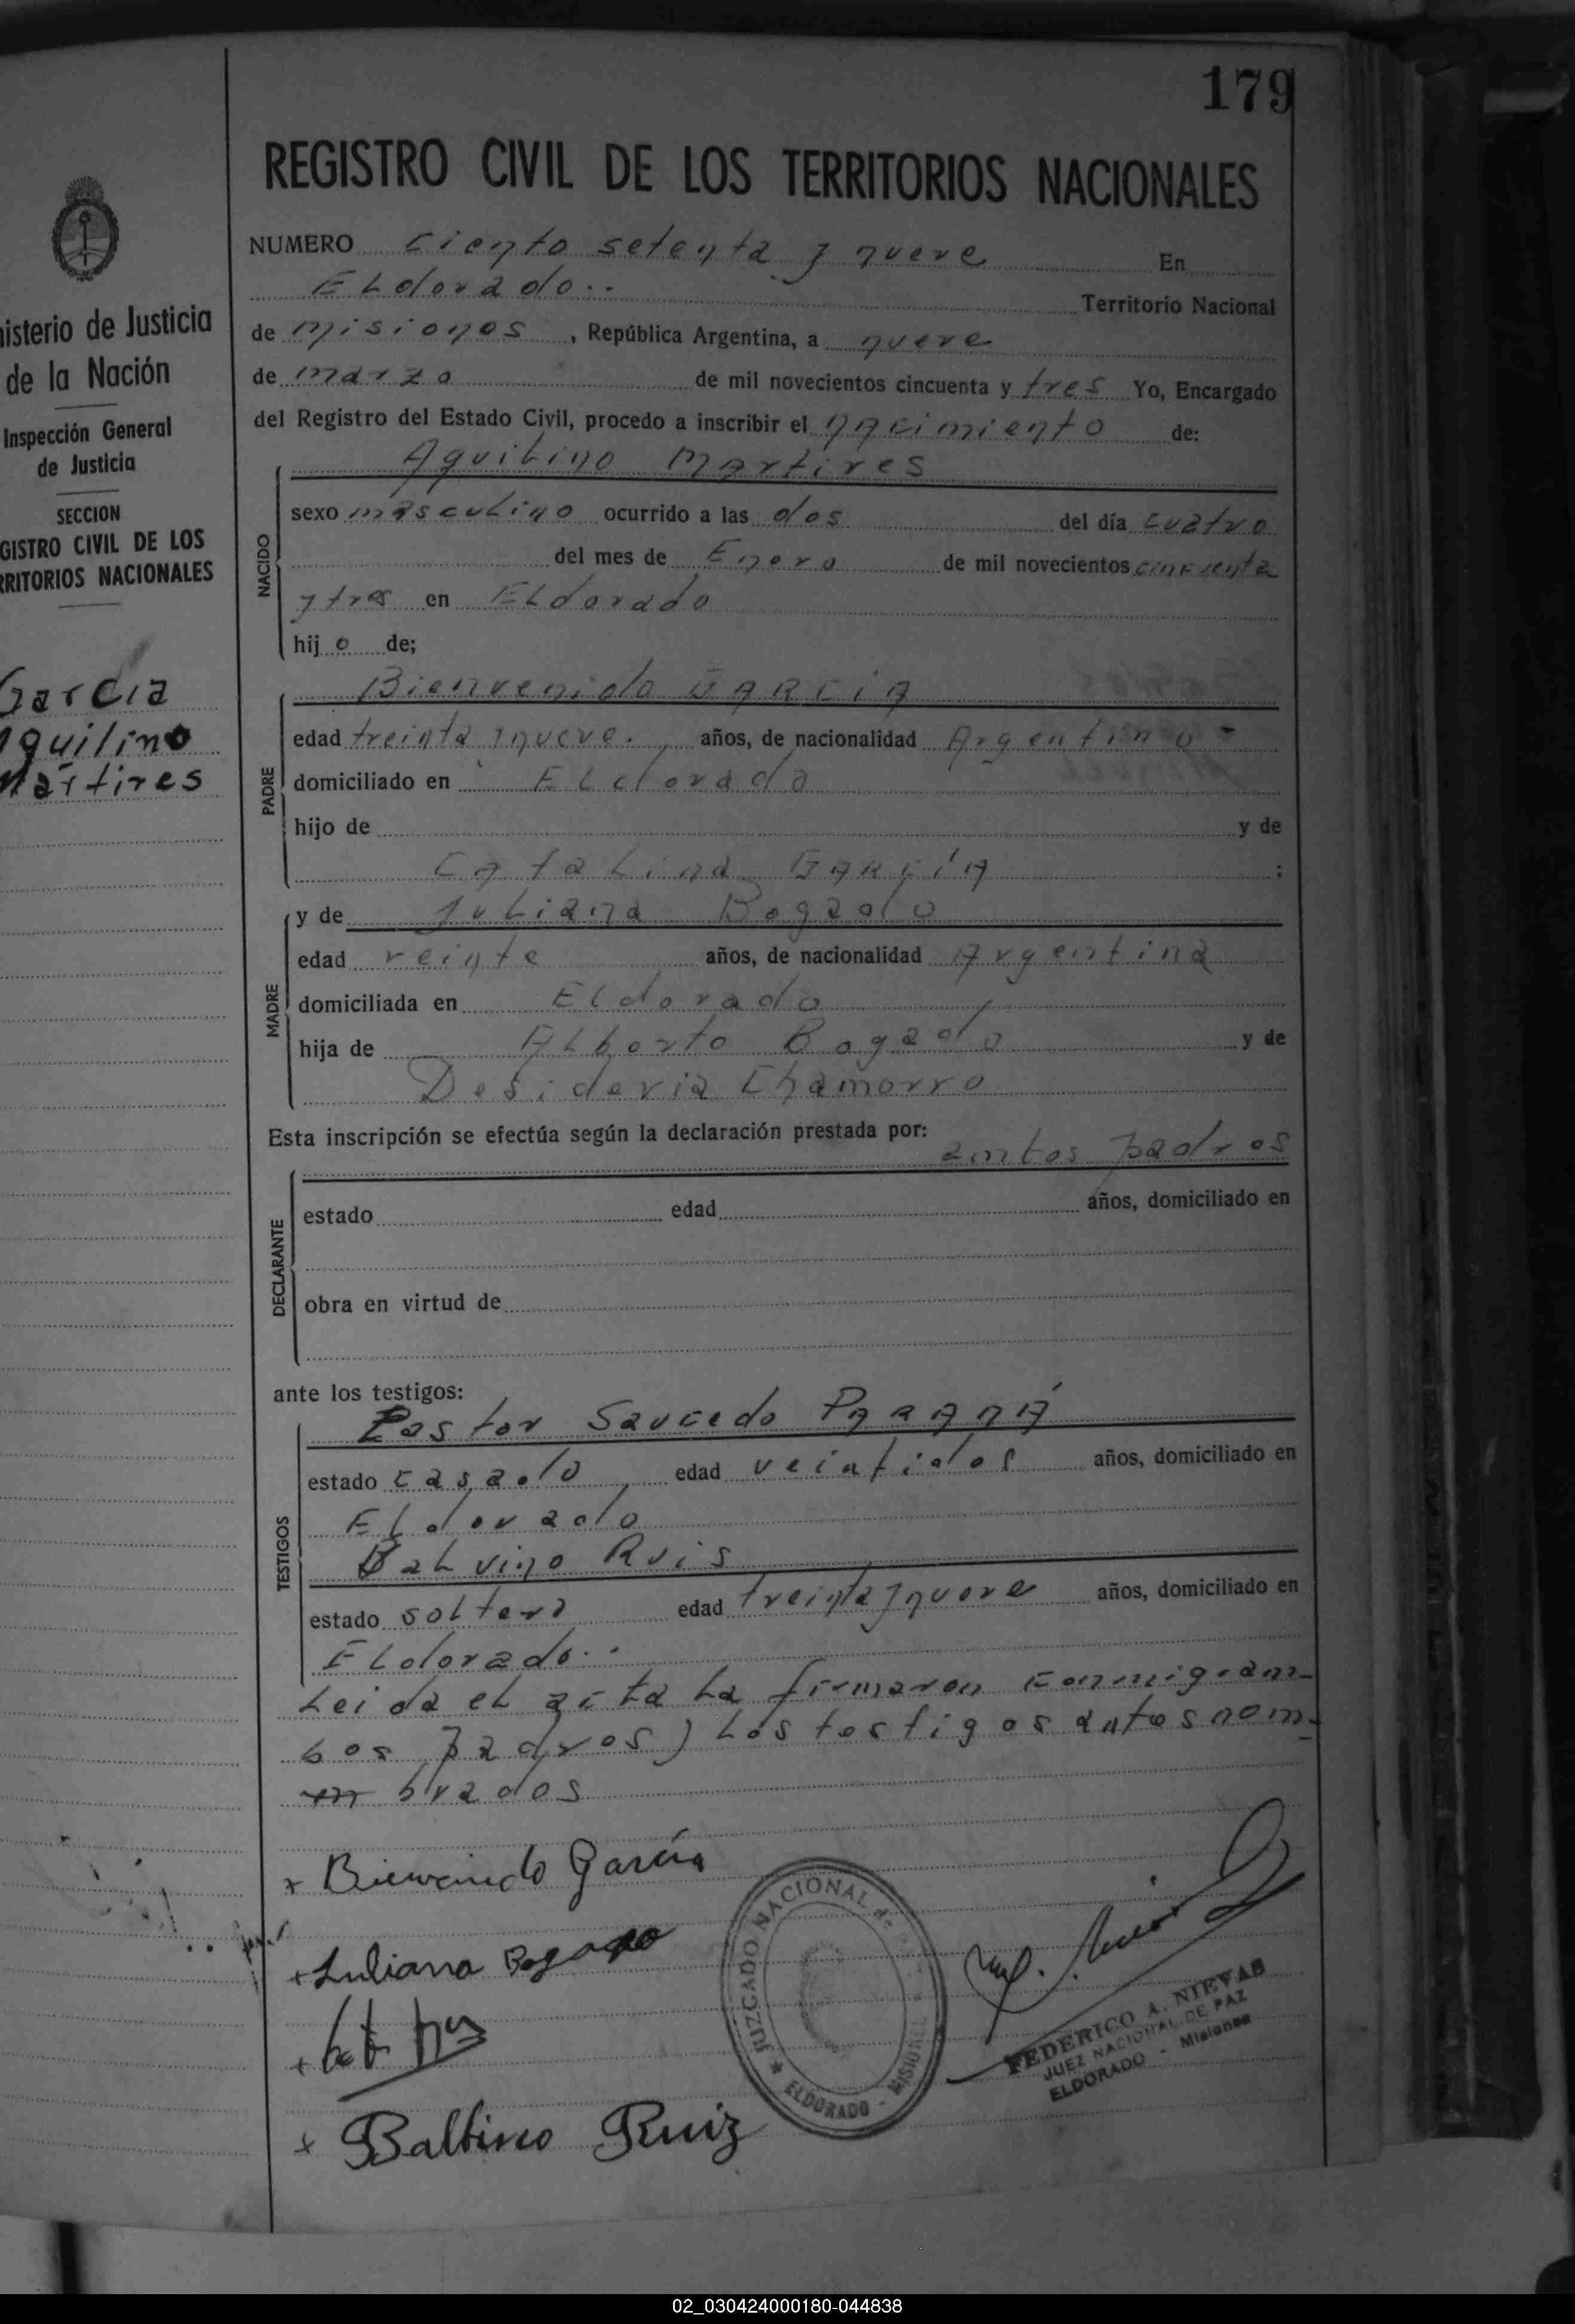 179
REGISTRO CIVIL DE LOS TERRITORIOS NACIONALES
NUMERO Ciento setenta y nueve En
ELdorado..
Territorio Nacional
de misiones, República Argentina, a nueve
de marzo de mil novecientos cincuenta y tres Yo, Encargado
del Registro del Estado Civil, procedo a inscribir el nacimiento de:
Aquilino Martires
NACIDO
sexo masculino ocurrido a las dos del día cuatro
del mes de Enero de mil novecientos cincuenta
y tres en ELdorado
hijo de;
Bienvenido GARCÍA
PADRE
edad treinta y nueve. años, de nacionalidad Argentino -
domiciliado en ELdorado
hijo de y de
Catalina GARCÍA ;
y de Juliana Bogado
MADRE
edad veinte años, de nacionalidad Argentina
domiciliada en Eldorado
hija de Alberto Bogado y de
Desideria Chamorro
Esta inscripción se efectúa según la declaración prestada por:
ambos padres
DECLARANTE
estado edad años, domiciliado en
obra en virtud de
ante los testigos:
Pastor Saucedo PARANÁ
TESTIGOS
estado casado edad veintidos años, domiciliado en
ELdorado
BaLvino Ruis
estado soltero edad treinta y nueve años, domiciliado en
ELdorado..
Leida el acta La firmaron conmigo am-
bos padres y Los testigos antes nom-
brados
x Bienvenido García
+ Juliana Bogado
x Balbino Ruiz
JUZGADO NACIONAL de
ELDORADO - MISIONES
FEDERICO A. NIEVAS
JUEZ NACIONAL DE PAZ
ELDORADO - Misiones
nisterio de Justicia
de la Nación
Inspección General
de Justicia
SECCION
GISTRO CIVIL DE LOS
RRITORIOS NACIONALES
Garcia
Aquilino
Martires
02_030424000180-044838